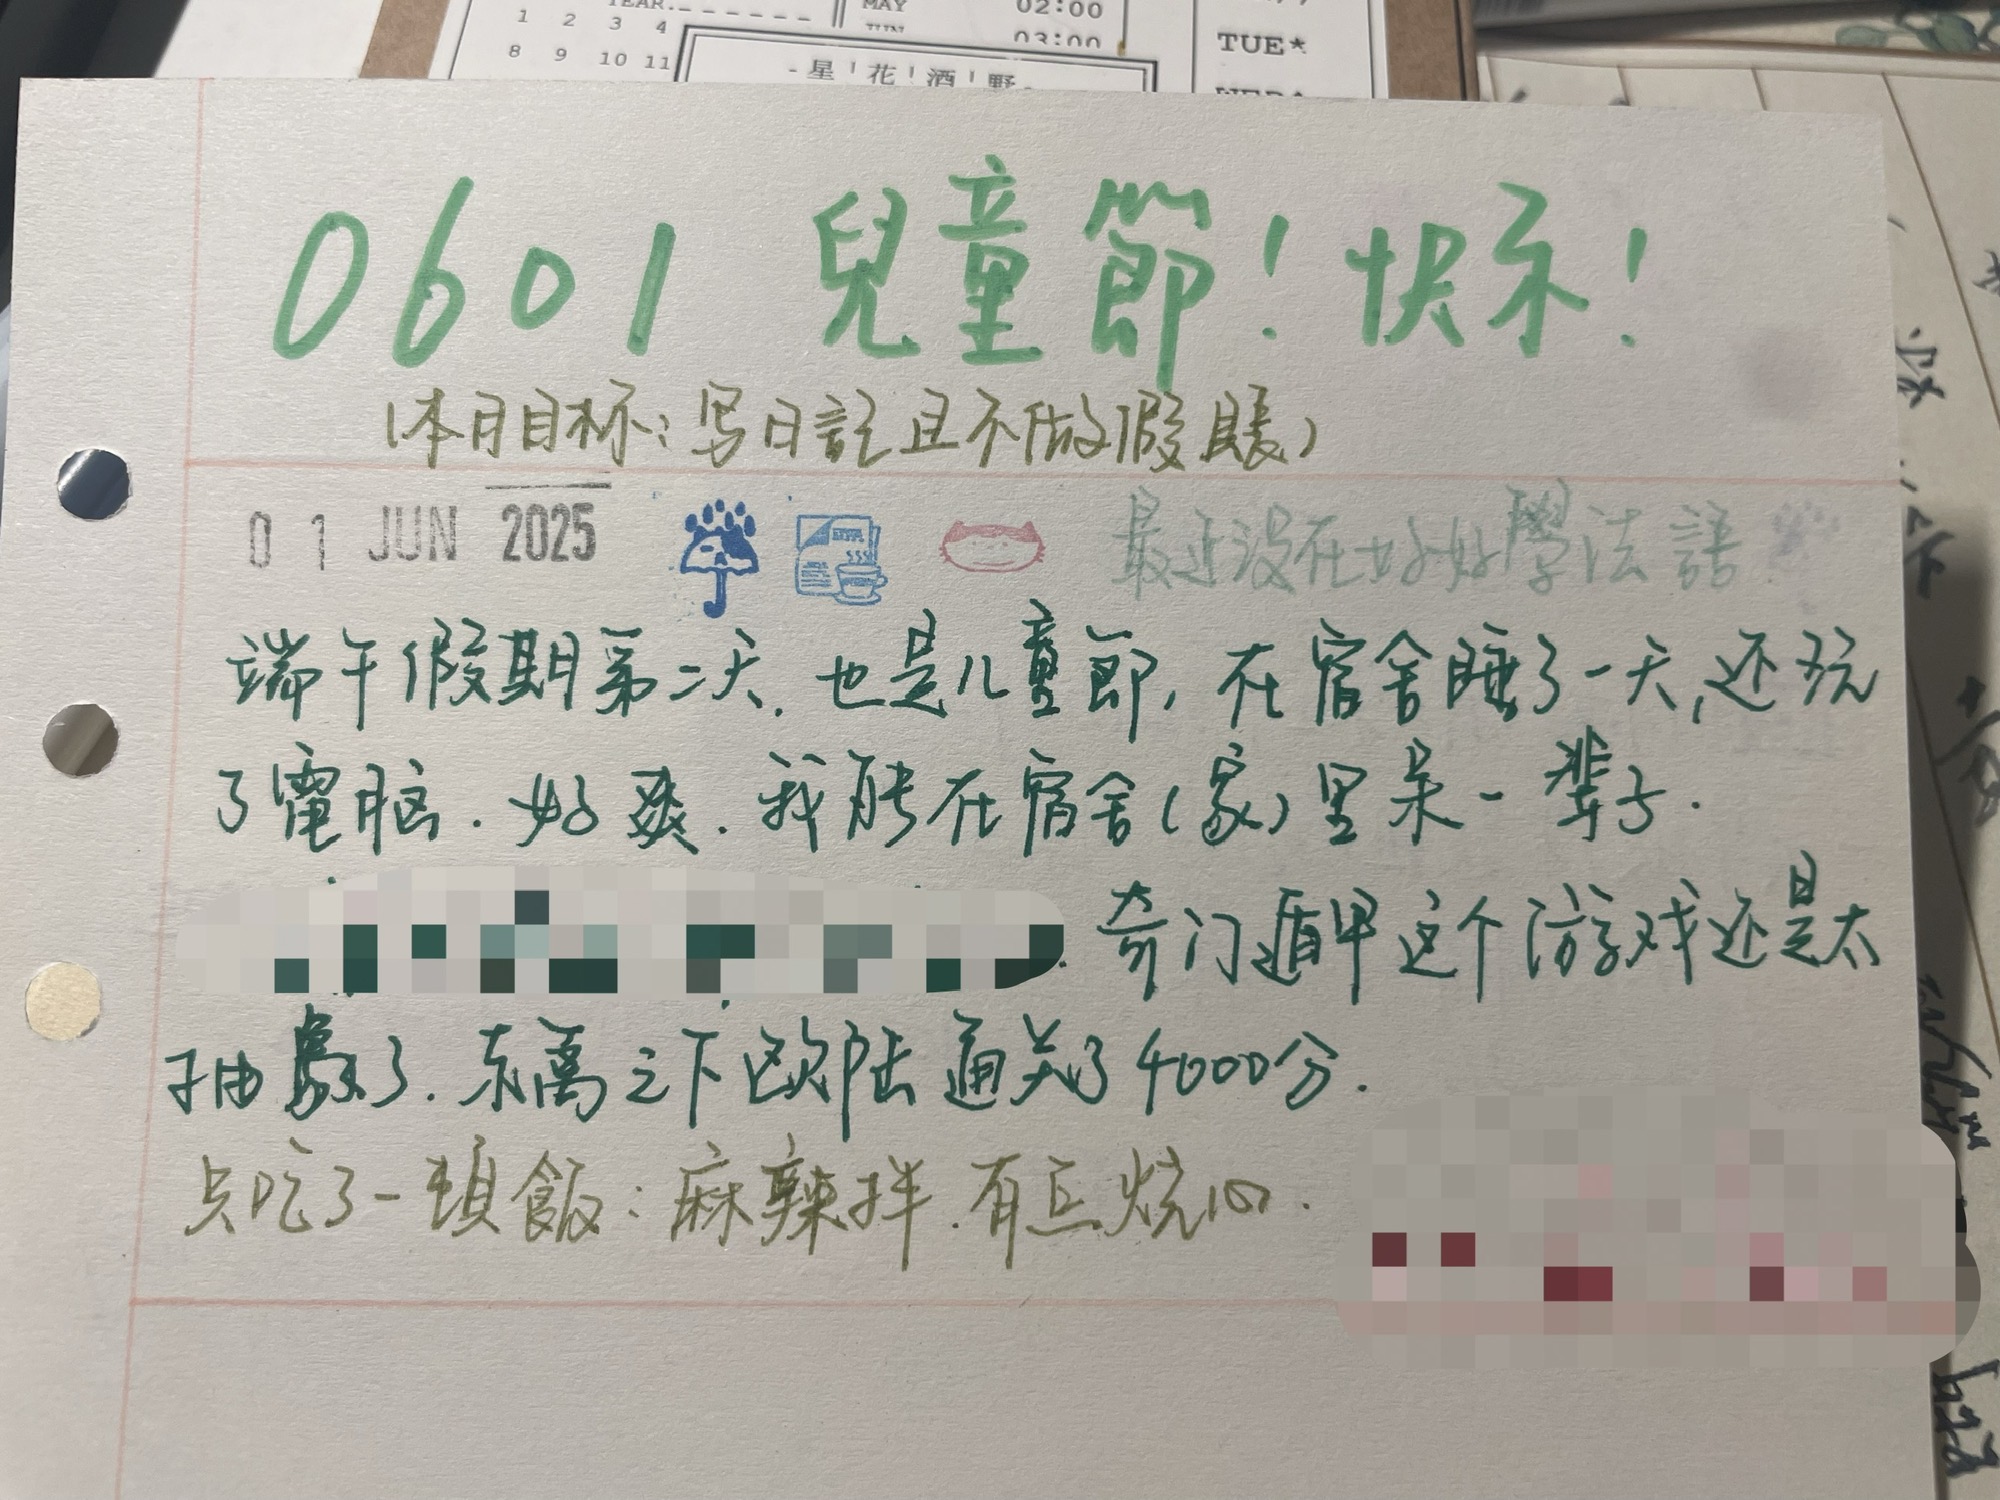 YEAR.
1 2 3 4
8 9 10 11
MAY 02:00
JUN 03:00
TUE*
-星!花!酒!野
0601 兒童節!快乐!
(本月目标:写日記且不做假賬)
01 JUN 2025
最近没在好好學法語
端午假期第二天.也是儿童節,在宿舍睡了一天,还玩
了電脑.好爽.我能在宿舍(家)里呆一辈子.
奇门遁甲这个游戏还是太
抽象了.东离之下欧陆通关了4000分.
只吃了一頓飯:麻辣拌.有点烧心.